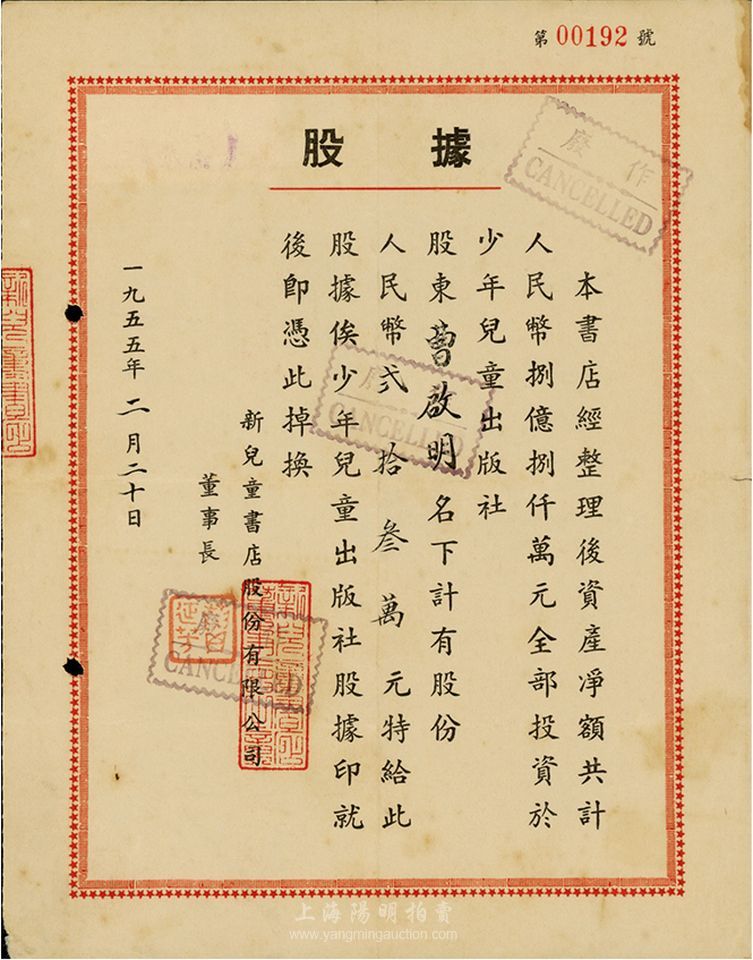 第 00192 號
股據
本書店經整理後資產凈額共計
人民幣捌億捌仟萬元全部投資於
少年兒童出版社
股東曹啟明名下計有股份
人民幣弍拾叁萬元特給此
股據俟少年兒童出版社股據印就
後卽憑此掉換
新兒童書店股份有限公司
董事長
一九五五年二月二十日
作廢
CANCELLED
作廢
CANCELLED
作廢
CANCELLED
上海陽明拍賣
www.yangmingauction.com